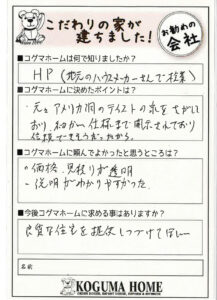 こだわりの家が
建ちました!
お勧めの
会社
■コグマホームは何で知りましたか?
HP(地元のハウスメーカーさんで検索)
■コグマホームに決めたポイントは?
・元々アメリカ風のテイストの家をさがして
おり、細かい仕様まで開示されており
信頼できそうだったから。
■コグマホームに頼んでよかったと思うところは?
・価格、見積りが透明
・説明がわかりやすかった。
■今後コグマホームに求める事はありますか?
良質な住宅を提供しつづけてほしい
名前
KOGUMA HOME